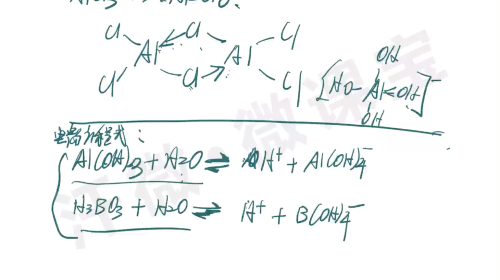 Cl Cl Cl
Al Al
Cl Cl Cl
[HO-Al<OH]⁻
OH
OH
电离方程式：
Al(OH)₃ + H₂O ⇌ H⁺ + Al(OH)₄⁻
H₃BO₃ + H₂O ⇌ H⁺ + B(OH)₄⁻
微课宝